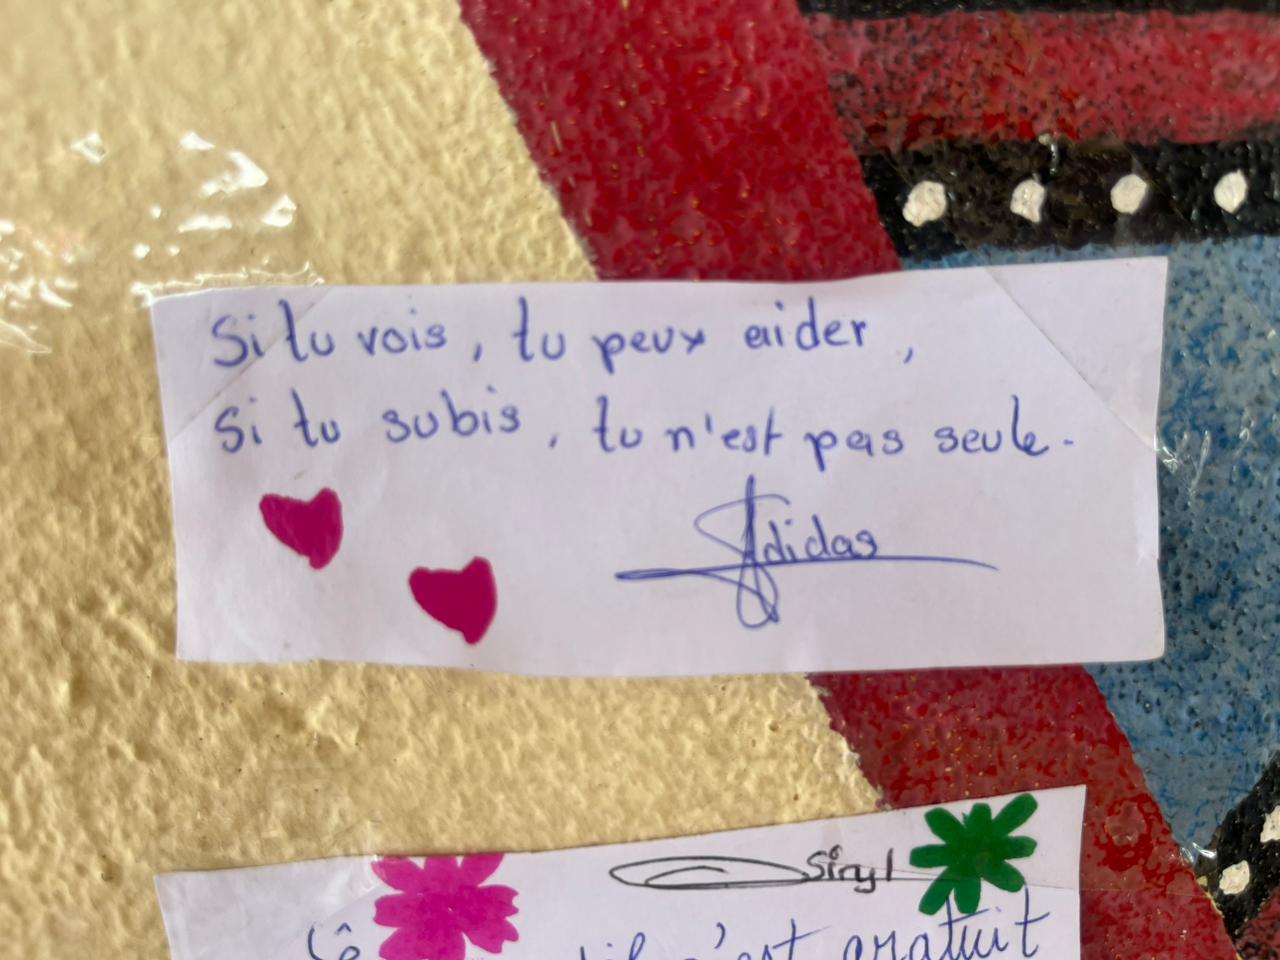 Si tu vois, tu peux aider,
si tu subis, tu n'est pas seule.
Adidas
Siryl
n'est gratuit